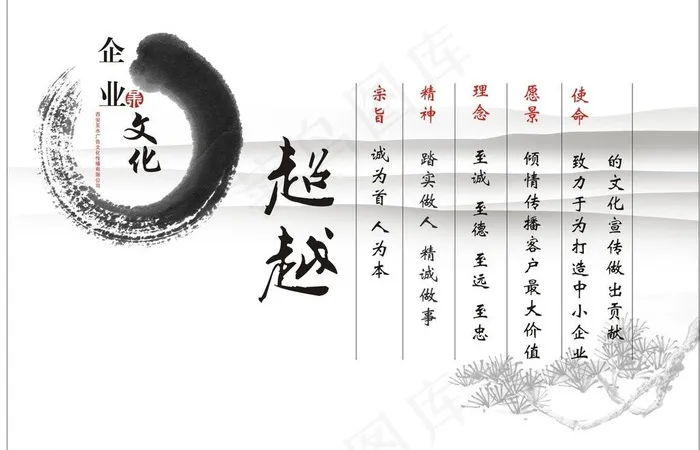 企业
文化
超越
宗旨
诚为首 人为本
精神
踏实做人 精诚做事
理念
至诚 至德 至远 至忠
愿景
倾情传播客户最大价值
使命
致力于为打造中小企业
的文化宣传做出贡献